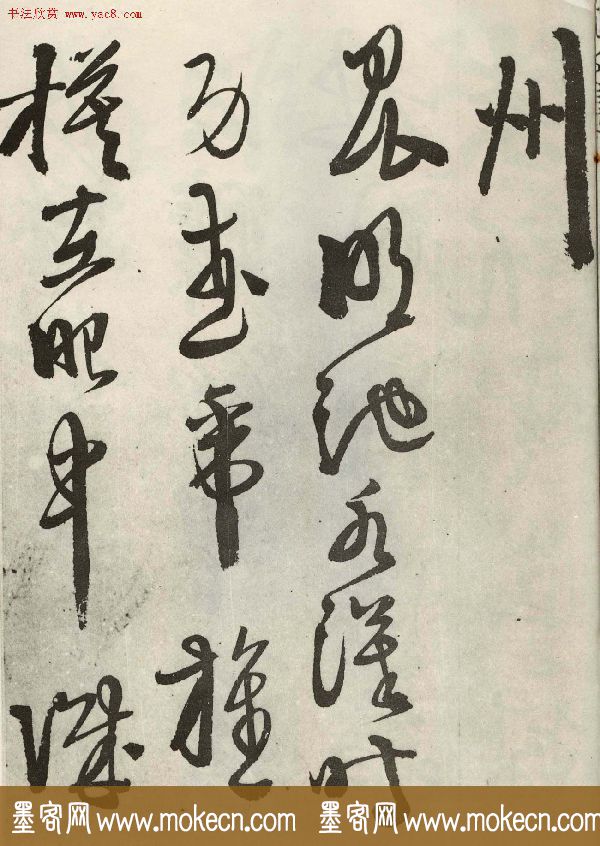 书法欣赏 www.yac8.com
州
昆明池水漢時
功武帝旌
旗在眼中織
墨客网 www.mokecn.com 墨客网 www.mokecn.com